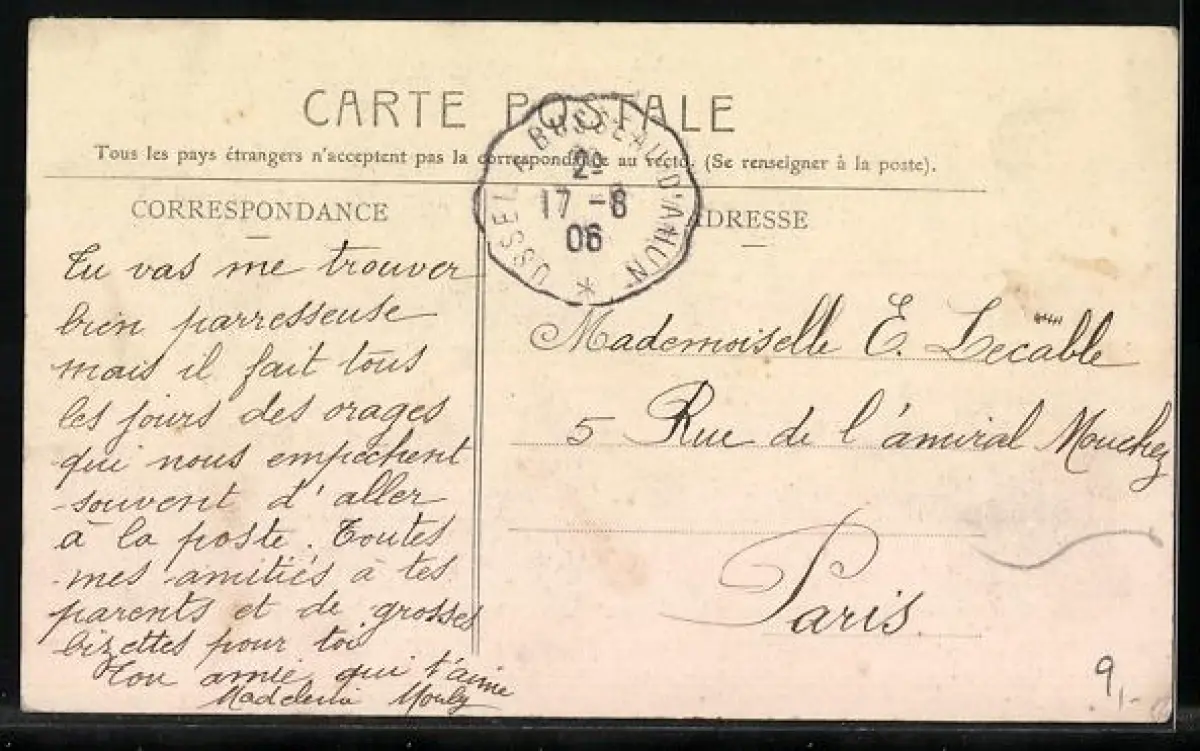 CARTE POSTALE
Tous les pays étrangers n'acceptent pas la correspondance au recto. (Se renseigner à la poste).
USSEL A BUSSEAU-D'AHUN
2º
17 -8
06
CORRESPONDANCE
ADRESSE
Tu vas me trouver
bien parresseuse
mais il fait tous
les jours des orages
qui nous empêchent
souvent d'aller
à la poste. Toutes
mes amitiés à tes
parents et de grosses
bizettes pour toi
Ton amie qui t'aime
Madeleine
Mademoiselle E. Lecâble
5 Rue de l'amiral Mouchez
Paris
9,-